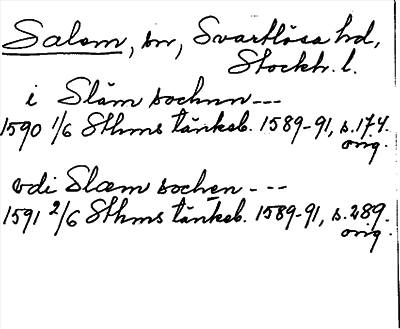 Salem, sn, Svartlösa hd,
Stockh. l.
i Släm sochnn ---
1590 1/6 Sthms tänkeb. 1589-91, s. 174.
orig.
vdi Slæm sochen ---
1591 2/6 Sthms tänkeb. 1589-91, s. 289.
orig.